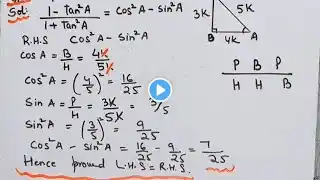 Sol: (1 - tan²A)/(1 + tan²A) = cos²A - sin²A
R.H.S Cos²A - Sin²A
Cos A = B/H = 4K/5K
Cos²A = (4/5)² = 16/25
Sin A = P/H = 3K/5K = 3/5
Sin²A = (3/5)² = 9/25
Cos²A - sin²A = 16/25 - 9/25 = 7/25
Hence proved L.H.S = R.H.S.
3K 5K
B 4K A
P B P
H H B